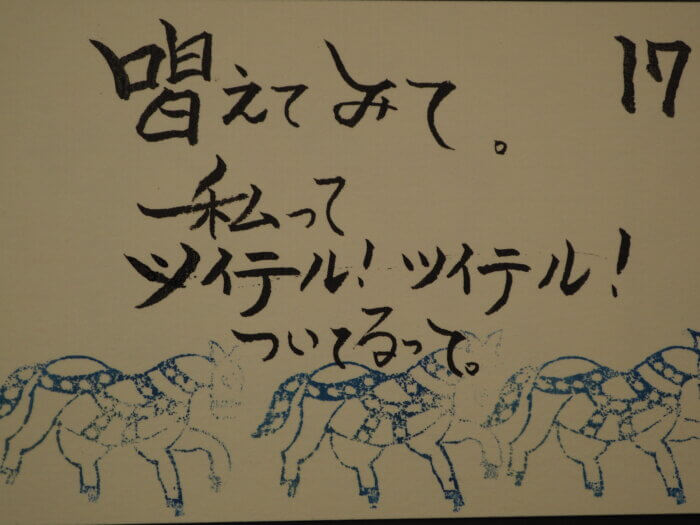 唱えてみて。
17
私って
ツイテル!ツイテル!
ついてるって。